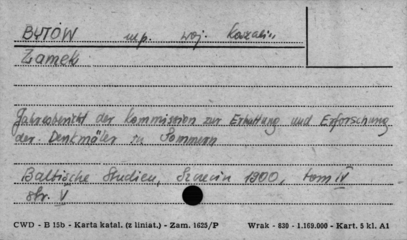 BYTÓW m.p. woj. Koszalin
Zamek
Jahresbericht der Kommission zur Erhaltung und Erforschung
der Denkmäler in Pommern
Baltische Studien, Szczecin 1900, tom IV
str. V
CWD - B 15b - Karta katal. (z liniat.) - Zam. 1625/P Wrak - 630 - 1.169.000 - Kart. 5 kl. A1